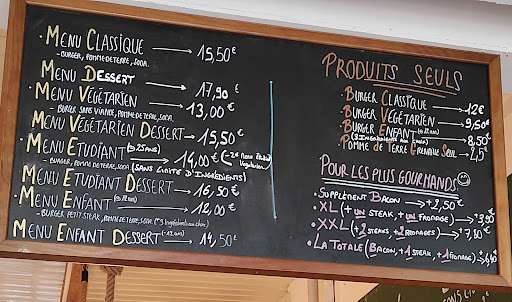 • Menu Classique → 15,50€
- Burger, pomme de terre, soda.
• Menu Dessert → 17,90€
• Menu Végétarien → 13,00€
- Burger sans viande, pomme de terre, soda.
• Menu Végétarien Dessert → 15,50€
• Menu Etudiant (-25ans) → 14,00€
- Burger, pomme de terre, soda (sans limite d'ingrédients)
• Menu Etudiant Dessert → 16,50€
• Menu Enfant → 12,00€
- Burger petit steak, pomme de terre, soda
• Menu Enfant Dessert (-12 ans) → 14,50€
Produits Seuls
• Burger Classique → 12€
• Burger Végétarien → 9,50€
• Burger Enfant (-12 ans) → 8,50€
• Pomme de Terre Grenaille Seul
Pour les plus Gourmands
• Supplément Bacon → +2,50€
• XL (+ un steak, + un fromage) → +3,90€
• XXL (+2 steaks +2 fromages) → +7,80€
• La Totale (Bacon, +1 steak, +1 fromage)